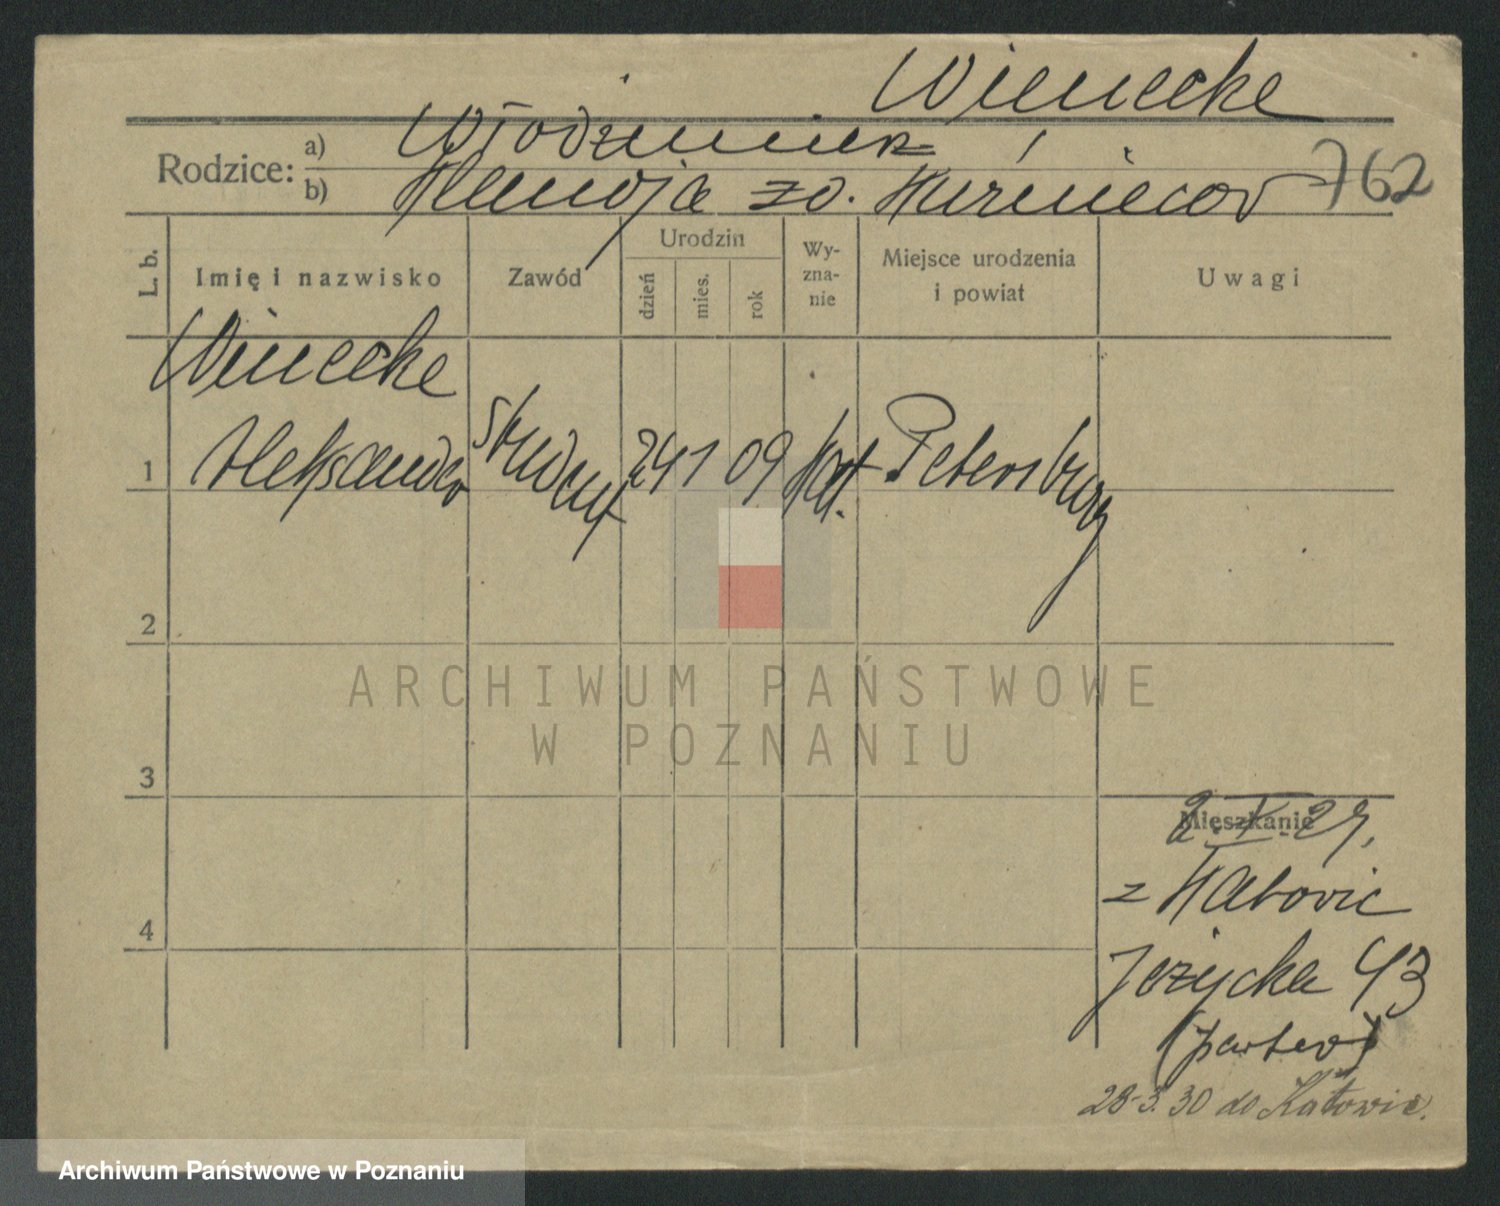 Wienecke
Rodzice: a) Włodzimierz
b) zd. 762
L. b. Imię i nazwisko Zawód Urodzin dzień mies. rok Wy-zna-nie Miejsce urodzenia i powiat Uwagi
Wienecke
1 Aleksander student 24 1 09 kat. Petersburg
2
3
4
Mieszkanie
z Katowic
Jeżycka 43
(parter)
28-3.30 do Katowic.
ARCHIWUM PAŃSTWOWE
W POZNANIU
Archiwum Państwowe w Poznaniu